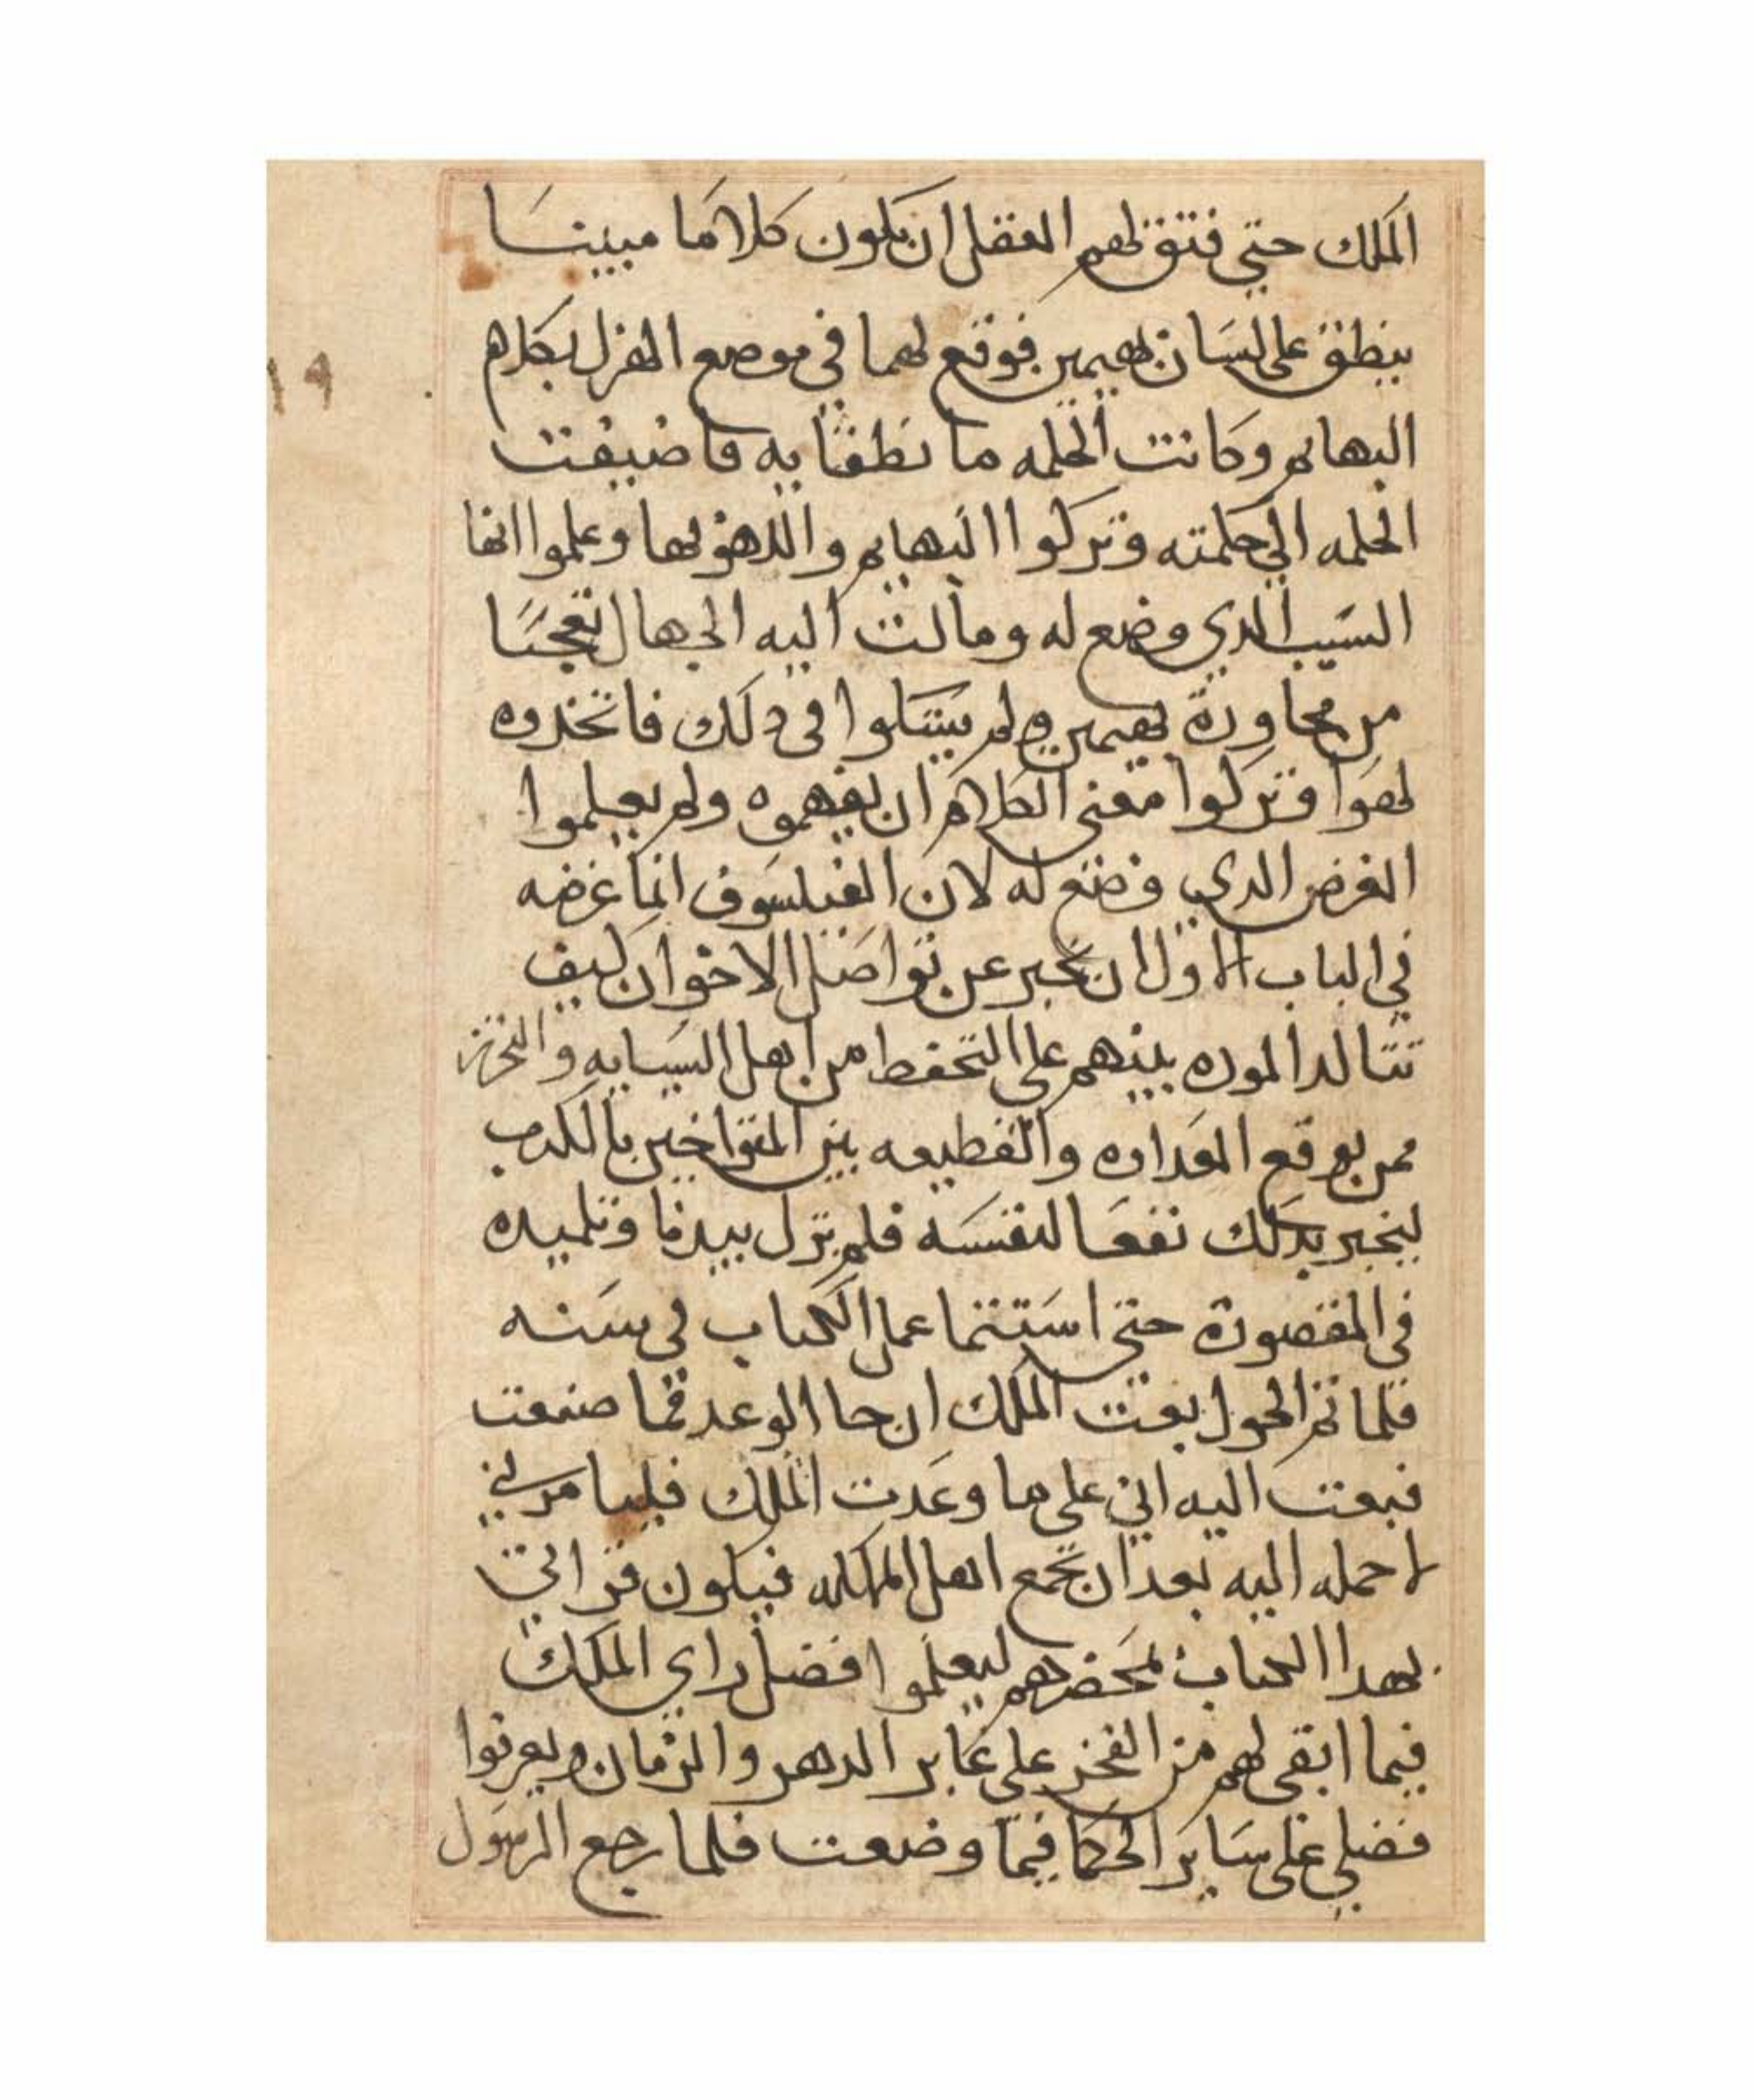 الملك حتي فتق لهم العقل ان يكون كلاما مبينا
ينطق على لسان بهيمين فوقع لهما في موضع الهزل بكلام
البهايم وكانت الحكمه ما نطقا به فاضيفت
الحكمه الي حكمته وتركوا البهايم واللهو بها وعلموا انها
السبب الدي وضع له ومالت اليه الجهال تعجبا
من محاورة بهيمين ولم يشكوا في دلك فاتخدوه
لهوا وتركوا معني الكلام ان يفهموه ولم يعلموا
الغرض الدي وضع له لان الفيلسوف انما غرضه
في الباب الاول ان يخبر عن تواصل الاخوان كيف
تتاكد الموده بينهم على التحفط من اهل السبايه والتحرز
ممن يوقع العداوه والقطيعه بين المتواخين بالكدب
ليخبر بدلك نفعا لنفسه فلم يزل بيدبا وتلميده
في المقصورة حتي استتما عمل الكتاب في سنه
فلما تم الحول بعت الملك ان جا الوعد فما صنعت
فبعت اليه اني على ما وعدت الملك فليامرني
لاحمله اليه بعد ان تجمع اهل المملكه فيكون قراتي
بهدا الكتاب بمحضرهم ليعلموا فضل راي الملك
فيما ابقى لهم من الفخر على غابر الدهر والزمان ويعرفوا
فضلي على ساير الحكما فيما وضعت فلما رجع الرسول
١٩